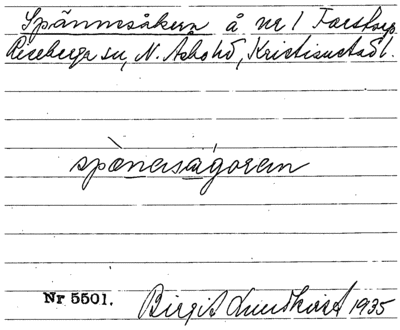 Spännsåkern å nr 1 Forstorp
Riseberga sn, N. Åsbo hd, Kristianstads l.
spònasågoren
Nr 5501.
Birgit Lundkvist 1935